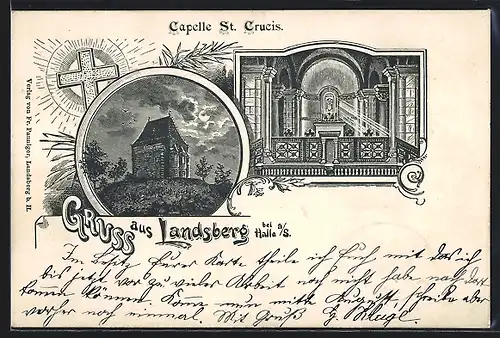 Capelle St. Crucis.
Verlag von Fr. Pannier, Landsberg b. H.
GRUSS aus Landsberg bei Halle a/S.
Im Besitz Eurer Karte theile ich Euch mit das ich
bis jetzt vor zu vieler Arbeit noch nicht habe nach dort
kommen können. Komme nun mitte August, schreibe aber
vorher noch einmal. Mit Gruß G. Kluge.